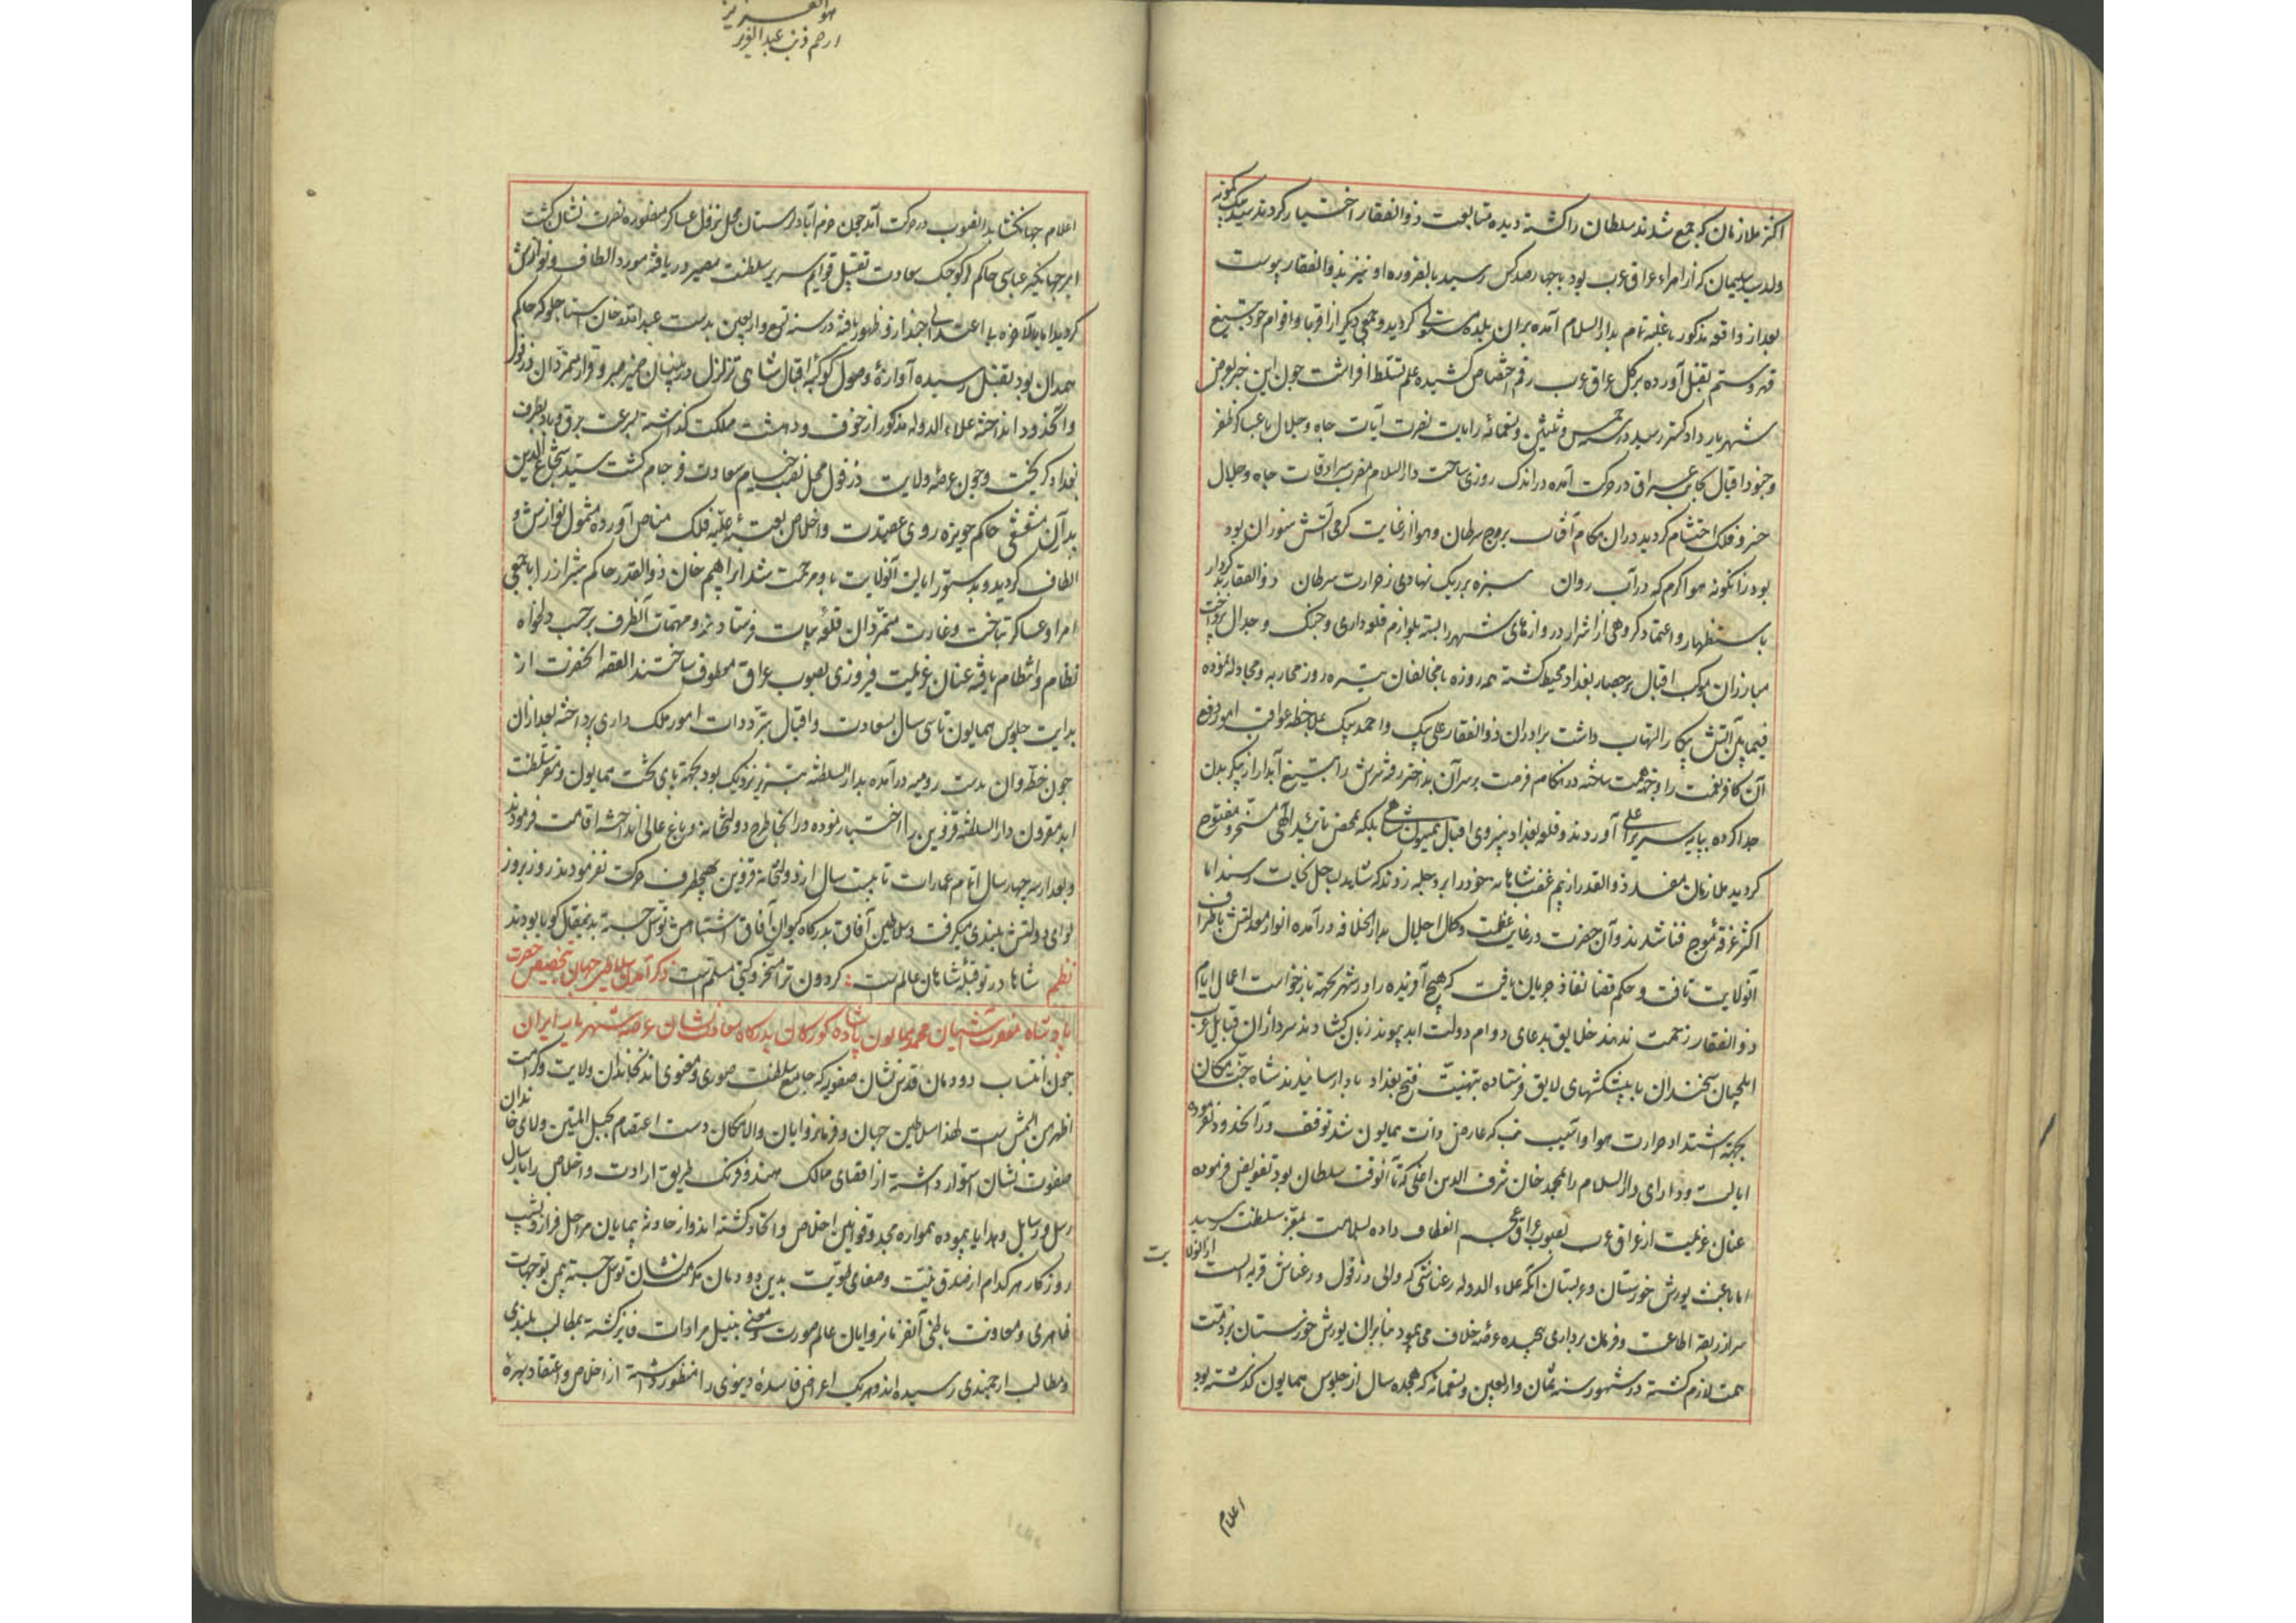 اکثر ملازمان که جمع شدند سلطان را کشته دیده متابعت ذوالفقار اختیار کردند سید بیک کمونه
ولد سلیمان که از امراء عراق عرب بود با چهارصد کس رسید بالضروره او نیز بذوالفقار پیوست
بعد از واقعه مذکور با غلبه تمام بدار السلام آمده بران بلده مستولی کردید و جمعی دیکر از اقربا و اقوام خود بتیغ
قهر و ستم بقتل آورده بر کل عراق عرب رقم اختصاص کشیده علم تسلط افراشت چون این خبر بعرض
شهریار دادکستر رسید در سنه خمس و ثلثین و تسعمائه رایات نصرت آیات جاه و جلال با عساکر ظفر
و جنود اقبال بجانب عراق در حرکت آمده در اندک روزی ساحت دار السلام مضرب سرادقات جاه و جلال
خسرو فلک احتشام کردید دران هنکام آفتاب ببروج سرطان و هوا از غایت کرمی آتش سوزان بود
بود زانکونه هوا کرم که در آب روان سبزه بر ریک نهادی ز حرارت سرطان ذوالفقار بدکردار
باستظهار و اعتماد کروهی از اشرار دروازهای شهر را بسته بلوازم قلعه‌داری و جنک و جدال پرداخت
مبارزان موکب اقبال بر حصار بغداد محیط کشته همه روزه با مخالفان تیره روز محاربه و مجادله نموده
فیمابین آتش پیکار التهاب داشت برادران ذوالفقار علی بیک و احمد بیک بملاحظه عواقب امور دفع
آن کافر نعمت را وجه همت ساخته در هنکام فرصت بر سر آن بداختر رفته سرش را بتیغ آبدار از پیکر بدن
جدا کرده بپایه سریر اعلی آوردند و قلعه بغداد بنیروی اقبال همیون شاهی بلکه بمحض تائید الهی مسخر و مفتوح
کردید ملازمان مفسد ذوالقدر از بیم غضب شاهانه خود را بر دجله زدند که شاید بساحل نجات رسند اما
اکثر غرقه موج فنا شدند و آن حضرت در غایت عظمت و کمال اجلال بدار الخلافه درآمده انوار معدلتش باطراف
آنولایت تافت و حکم قضا نفاذ جریان یافت که هیچ آفریده را در شهر بجهة بازخواست اعمال ایام
ذوالفقار زحمت ندهند خلایق بدعای دوام دولت ابد پیوند زبان کشادند سرداران قبایل عرب
ایلچیان سخندان با پیشکشهای لایق فرستاده بتهنیت فتح بغداد مبادرت نمودند شاه جنت مکان
بجهة اشتداد حرارت هوا و آسیب تب که عارض ذات همایون شد توقف در آنحدود نفرموده
ایالت و دارای دار السلام را بمحمد خان شرف الدین اغلی که تا آنوقت سلطان بود تفویض فرموده
عنان عزیمت از عراق عرب بصوب عراق عجم انعطاف داده بسلامت بمقر سلطنت رسید
اما باعث یورش خوزستان و عربستان آنکه علاء الدوله رعناشی که والی دزفول و رعناش قریه ایست ازانولایت
سر از ربقه اطاعت و فرمان برداری پیچیده عرصه خلاف می‌پیمود بنابران یورش خوزستان بر ذمت
همت لازم کشته در شهور سنه ثمان و اربعین و تسعمائه که هجده سال از جلوس همایون کذشته بود
اعلام
هو العزیز
ارحم ذنب عبد العزیز
اعلام جهانکشا بدانصوب در حرکت آمد چون خرم آباد لرستان محل نزول عساکر منصوره نصرت نشان کشت
امیر جهانکیر عباسی حاکم لر کوچک سعادت تقبیل قوایم سریر سلطنت مصیر دریافته مورد الطاف و نوازش
کردید اما بالآخره بی‌اعتدالی چند ازو بظهور یافته در سنه تسع و اربعین بدست عبد الله خان استاجلو که حاکم
همدان بود بقتل رسیده آوازه وصول کوکبه اقبال شاهی تزلزل در بنیان صبر و قرار متمردان دزفول
و آنحدود انداخته علاء الدوله مذکور از خوف و دهشت مملکت کذاشته بسرعت برق و باد بطرف
بغداد کریخت و چون عرصه ولایت دزفول محل نصب خیام سعادت فرجام کشت سید شجاع الدین
بدران مشعشعی حاکم حویزه روی عقیدت و اخلاص بعتبه علیه فلک مناص آورده مشمول نوازش و
الطاف کردید و بدستور ایالت آنولایت باو مرحمت شد ابراهیم خان ذوالقدر حاکم شیراز را با جمعی
امرا و عساکر بتاخت و غارت متمردان قلعه بیات فرستادند و مهمات آنطرف بر حسب دلخواه
نظام و انتظام یافته عنان عزیمت فیروزی بصوب عراق معطوف ساختند القصه آنحضرت از
بدایت جلوس همایون تا سی سال بسعادت و اقبال بترددات امور ملک داری پرداخته بعد ازان
چون خطه وان بدست رومیه درآمده بدار السلطنه تبریز نزدیک بود بجهة پای تخت همایون و مقر سلطنت
ابد مقرون دار السلطنه قزوین را اختیار نموده در آنجا طرح دولتخانه و باغ عالی انداخته اقامت فرمودند
و بعد از سه چهار سال اتمام عمارات تا بیست سال از دولتخانه قزوین بهیچطرف حرکت نفرمودند روز بروز
لوای دولتش بلندی میکرفت و سلاطین آفاق بدرکاه کیوان آفاق اشتباهش توسل جسته بدینمقال کویا بودند
نظم شاها در تو قبله شاهان عالم است کردون ترا مسخر و کیتی مسلم است ذکر آمدن سلاطین جهان بتخصیص حضرت
پادشاه مغفرت آشیان محمد همایون پادشاه کورکان بدرکاه سعادت نشان عرصه شهریار ایران
چون انتساب دودمان قدس نشان صفویه که جامع سلطنت صوری و معنوی اند بخاندان ولایت و کرامت
اظهر من الشمس است لهذا سلاطین جهان و فرمانروایان والامکان دست اعتصام بحبل المتین ولای خاندان
صفوت نشان استوار داشته از اقصای ممالک هند و فرنک طریق ارادت و اخلاص را بارسال
رسل و رسایل و هدایا پیموده همواره مجدد قوانین اخلاص و اتحاد کشته اند و از حادثه پیمایان مراحل فراز و نشیب
روزکار هر کدام از صدق نیت و صفای طویت بدین دودمان مکرمت نشان توسل جسته بیمن توجهات
ظاهری و معاونت باطنی آنفرمانروایان عالم صورت و معنی بنیل مرادات فایز کشته بمطالب بلندی
و مطالب ارجمندی رسیده اند و هر یک اغراض فاسده دنیوی را منظور داشته از اخلاص و اعتقاد بهره